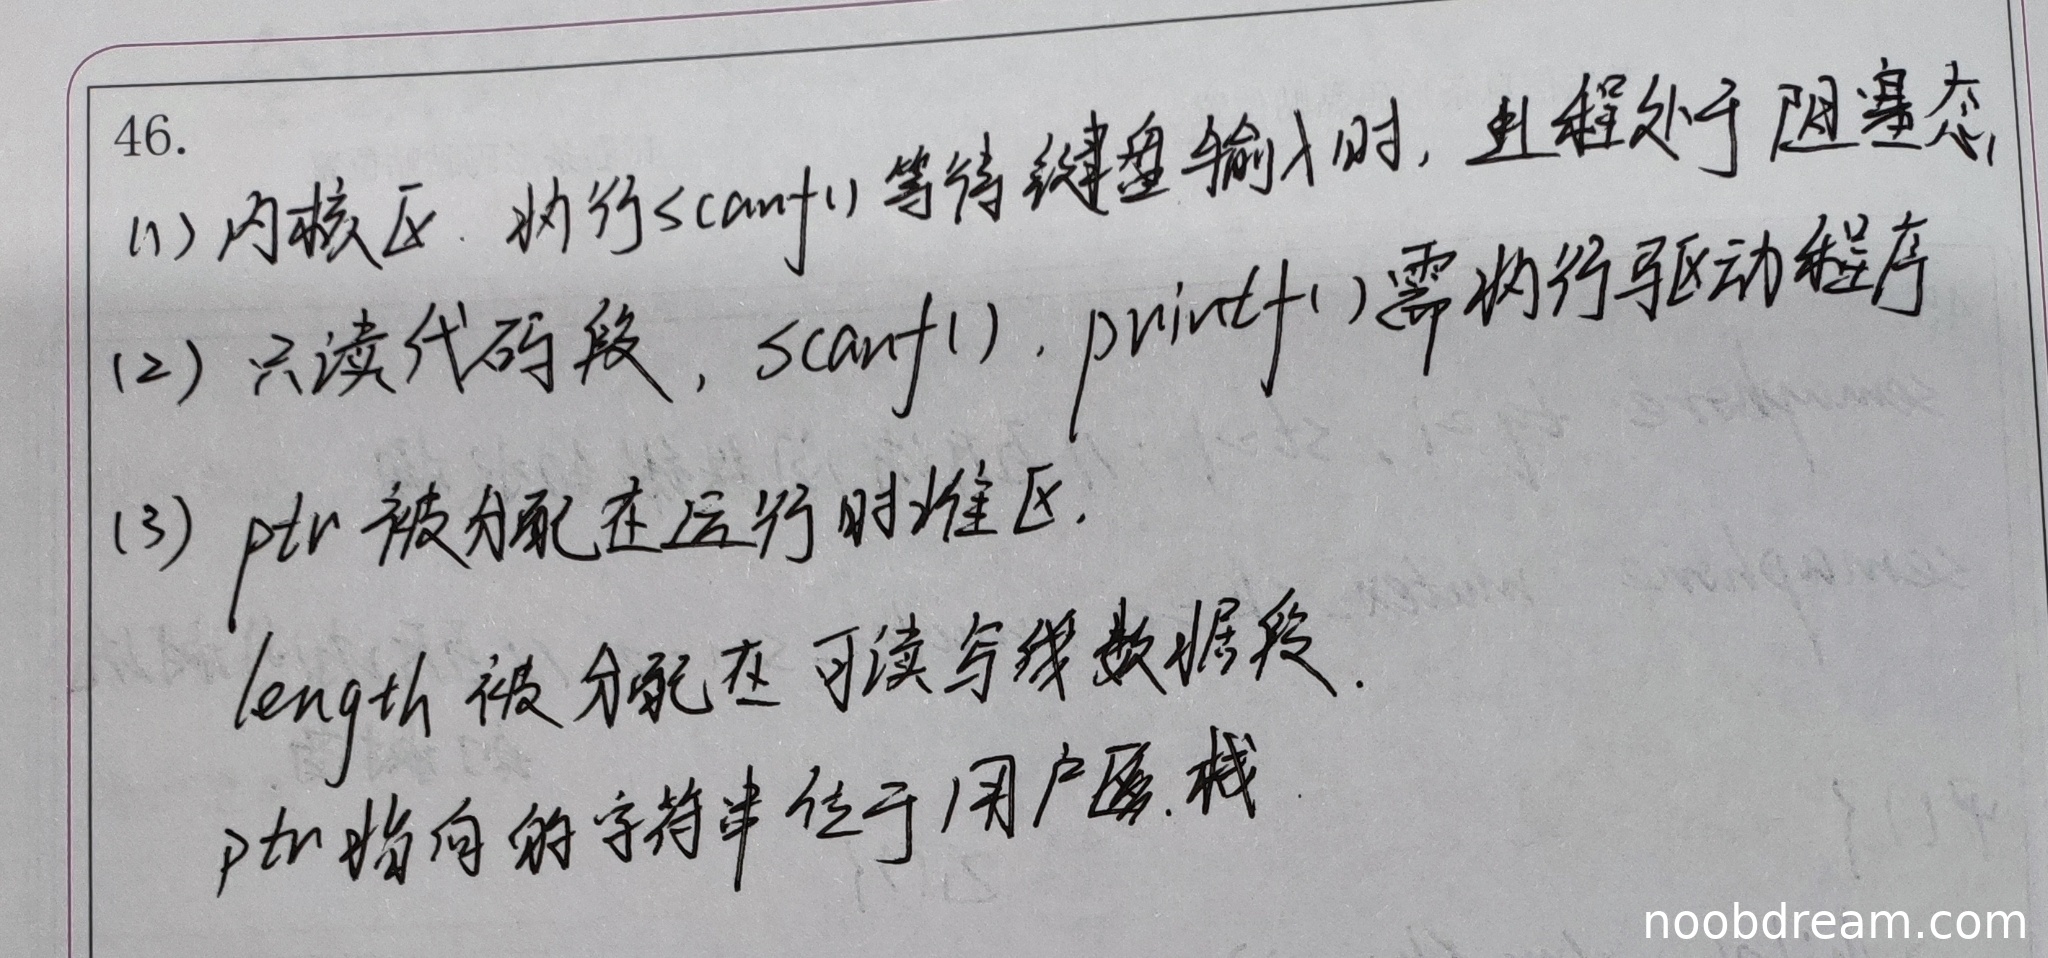 46.
(1) 内核区. 执行scanf()等待键盘输入时, 进程处于阻塞态,
(2) 只读代码段, scanf(), printf()需执行驱动程序
(3) ptr 被分配在运行时堆区.
length 被分配在可读写数据段.
ptr 指向的字符串位于用户栈
noobdream.com